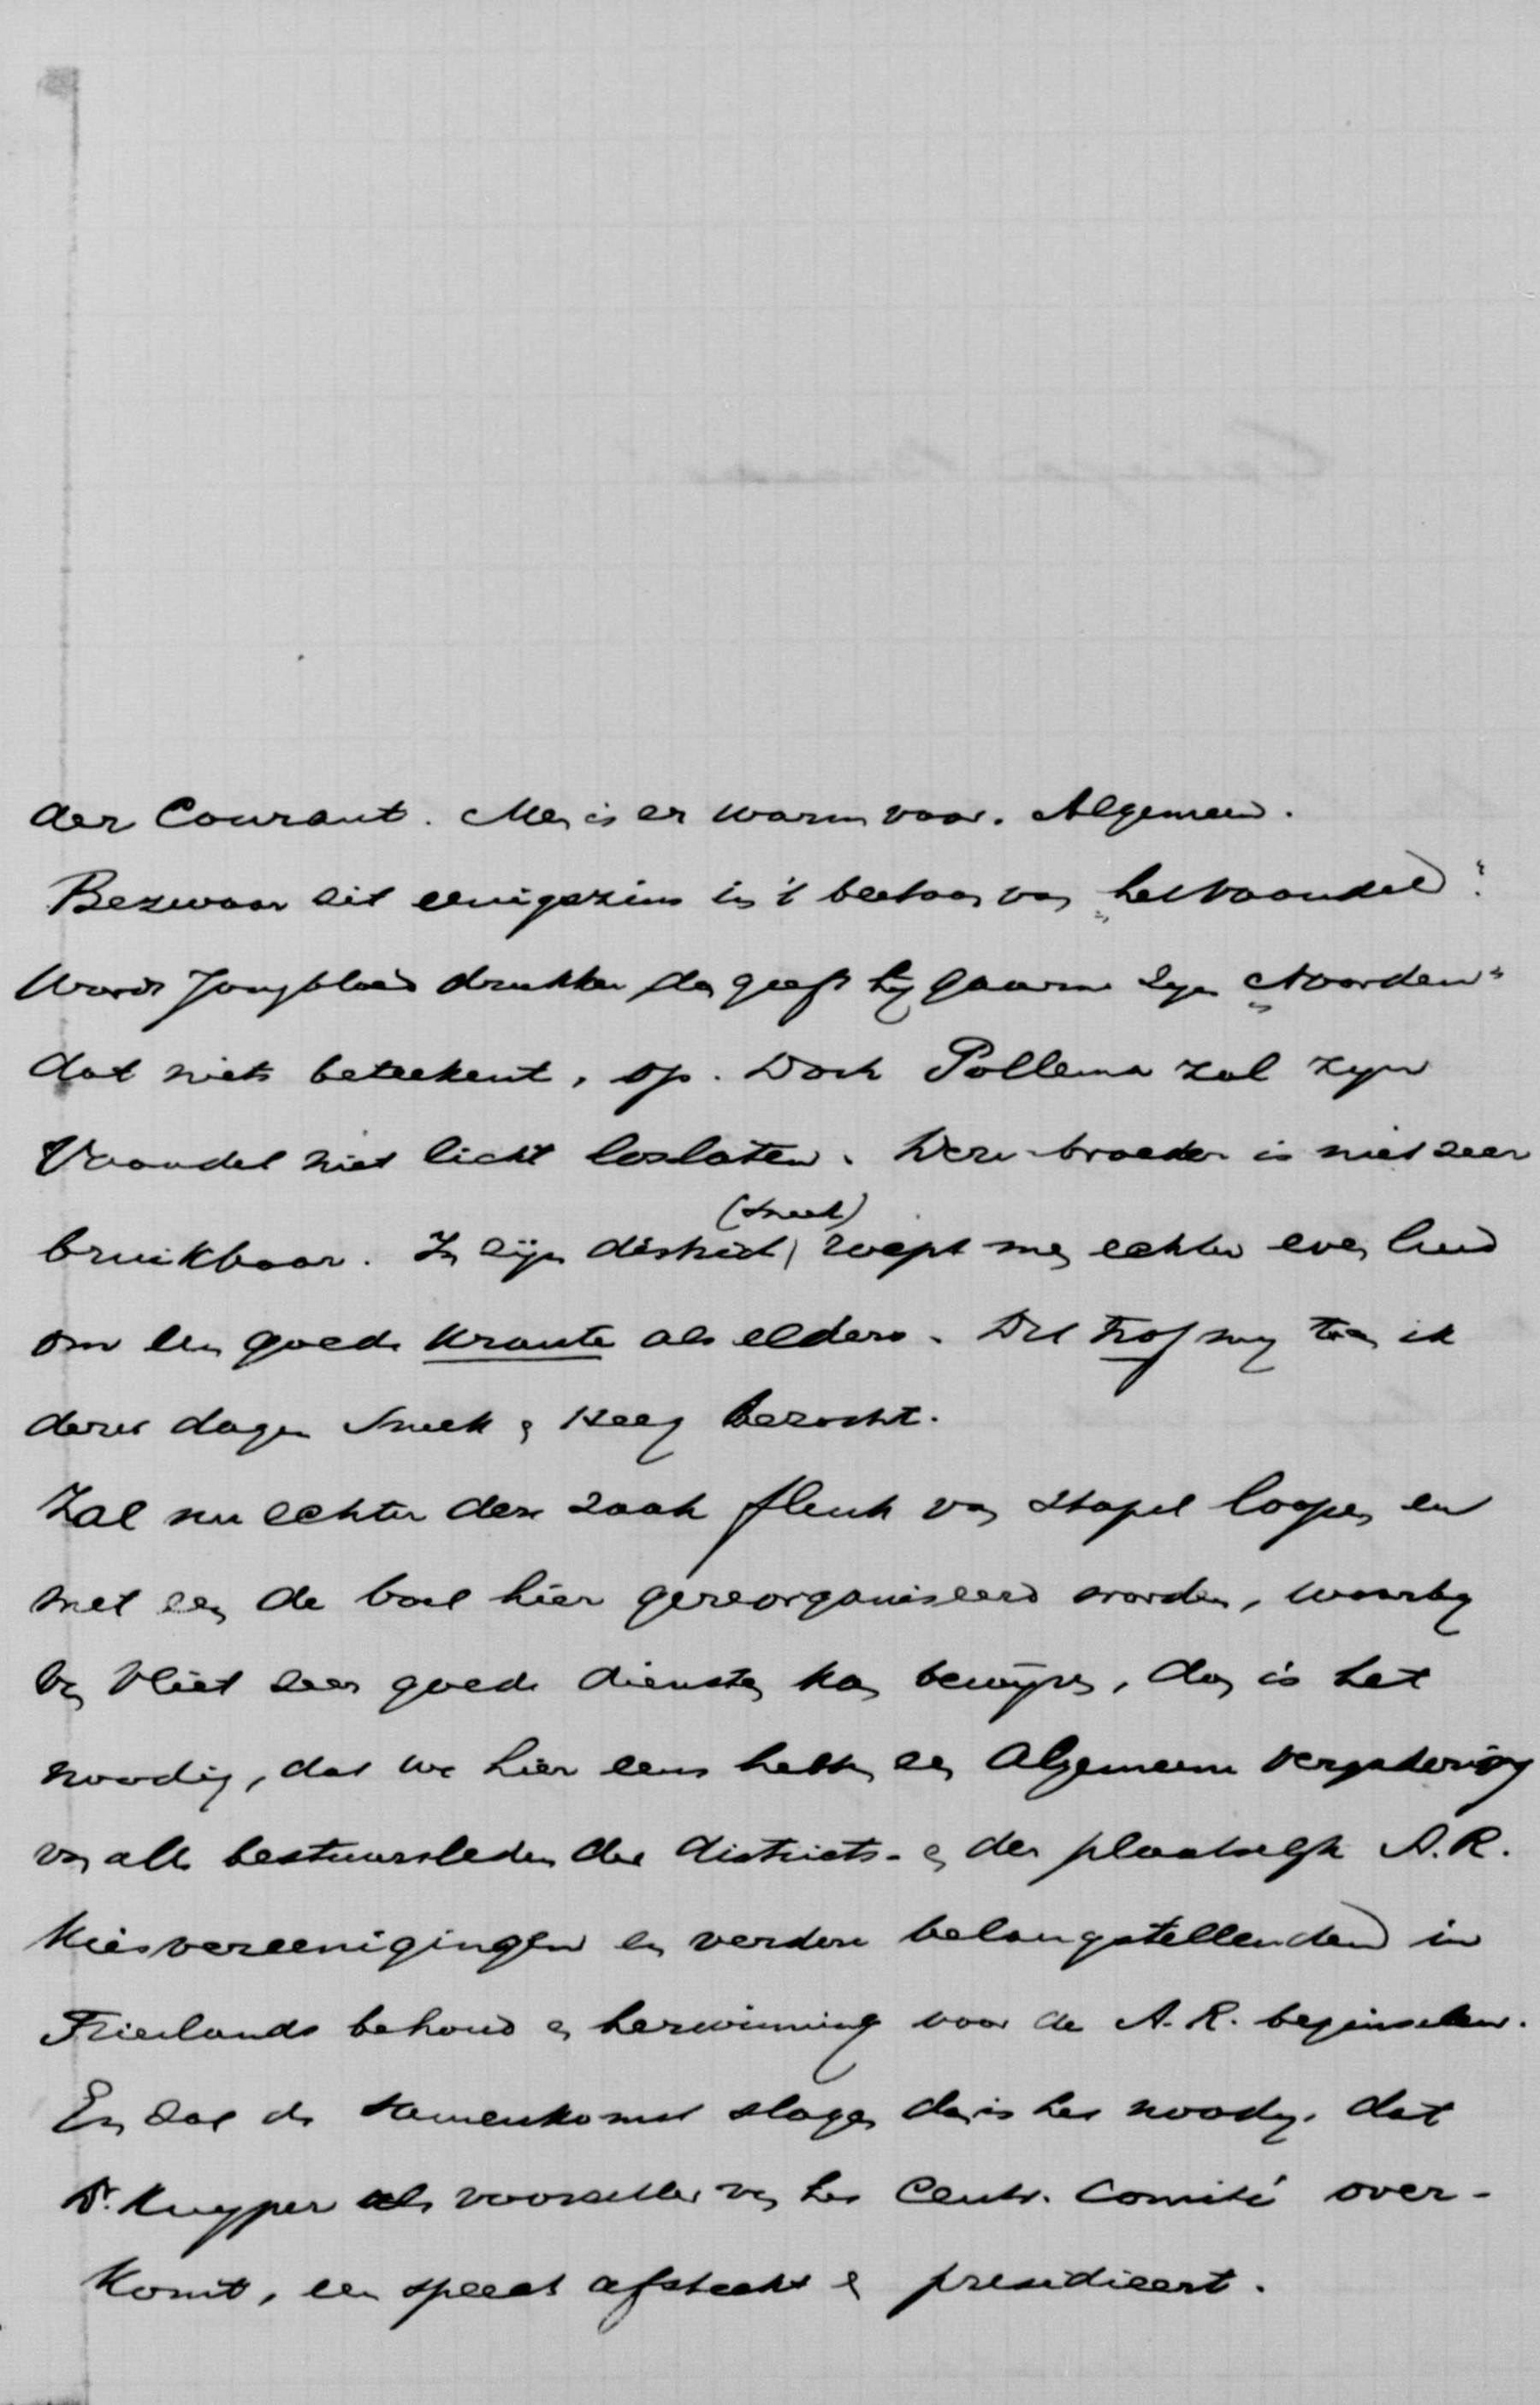 der Courant. Men is er warm voor. Algemeen.
Bezwaar zit eenigszins in 't bestaan van „het Vaandel".
Wordt Jongbloed drukker dan geeft hij gaarne zijn „Noorden"
dat niets beteekent, op. Doch Pollema zal zijn
Vaandel niet licht loslaten. Deze broeder is niet zeer
bruikbaar. In zijn district (Sneek) roept men echter even luid
om een goede krante als elders. Dit trof mij toen ik
dezer dagen Sneek en bezocht.
Zal nu echter deze zaak flink van stapel loopen en
met een de boel hier gereorganiseerd worden, waarbij
v. Vliet zeer goede diensten kan bewijzen, dan is het
noodig, dat we hier eens hebben een Algemeene Vergadering
van alle bestuursleden der districts- en der plaatselijke A.R.
Kiesvereenigingen en verdere belangstellenden in
Frieslands behoud en herwinning voor de A.R. beginselen.
En zal de samenkomst slagen dan is het noodig, dat
Dr. Kuyper als voorzitter van het Centr. Comité over-
komt, een speech afsteekt en presidieert.